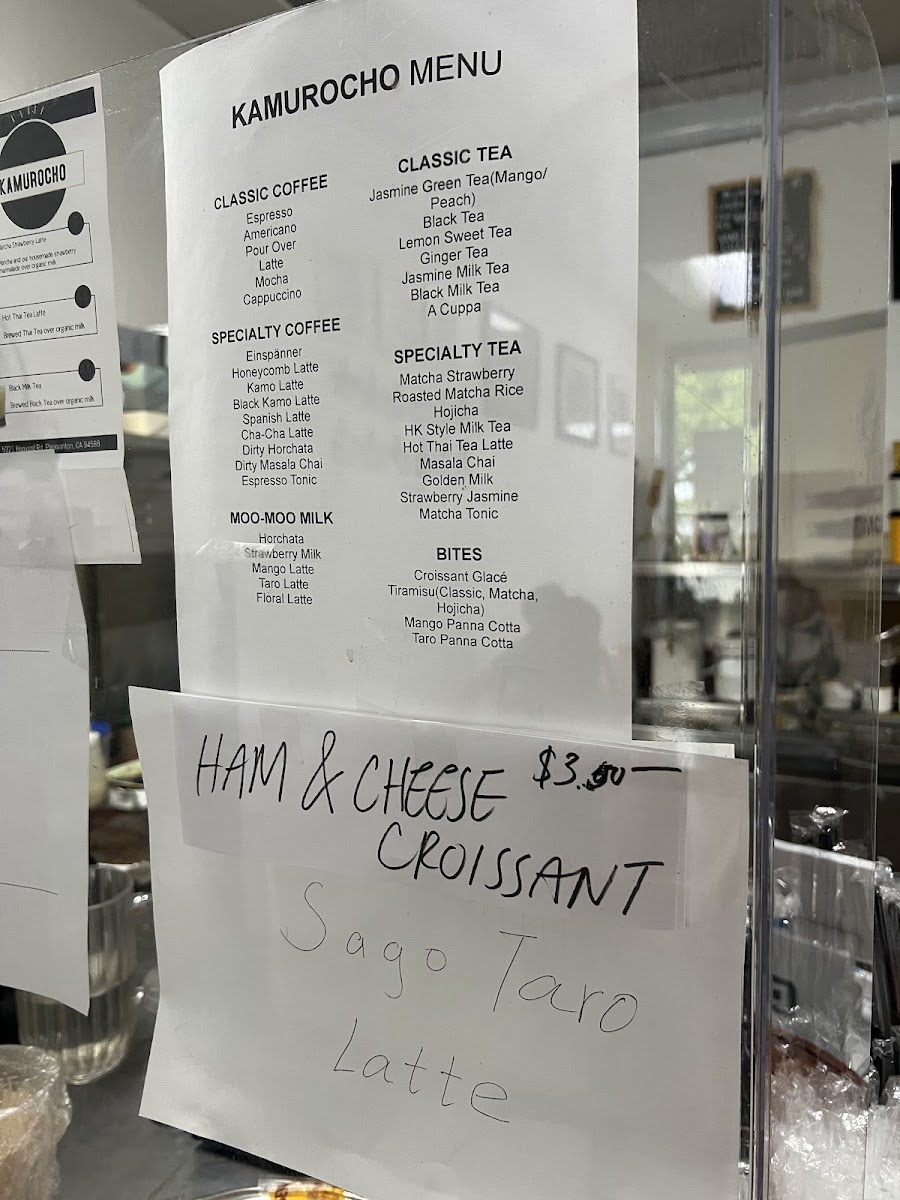 KAMUROCHO
Matcha Strawberry Latte
Matcha and our housemade strawberry
marmalade over organic milk
Hot Thai Tea Latte
Brewed Thai Tea over organic milk
Black Milk Tea
Brewed Black Tea over organic milk
Pleasanton, CA 94588
KAMUROCHO MENU
CLASSIC COFFEE
Espresso
Americano
Pour Over
Latte
Mocha
Cappuccino
SPECIALTY COFFEE
Einspänner
Honeycomb Latte
Kamo Latte
Black Kamo Latte
Spanish Latte
Cha-Cha Latte
Dirty Horchata
Dirty Masala Chai
Espresso Tonic
MOO-MOO MILK
Horchata
Strawberry Milk
Mango Latte
Taro Latte
Floral Latte
CLASSIC TEA
Jasmine Green Tea(Mango/
Peach)
Black Tea
Lemon Sweet Tea
Ginger Tea
Jasmine Milk Tea
Black Milk Tea
A Cuppa
SPECIALTY TEA
Matcha Strawberry
Roasted Matcha Rice
Hojicha
HK Style Milk Tea
Hot Thai Tea Latte
Masala Chai
Golden Milk
Strawberry Jasmine
Matcha Tonic
BITES
Croissant Glacé
Tiramisu(Classic, Matcha,
Hojicha)
Mango Panna Cotta
Taro Panna Cotta
HAM & CHEESE $3.50
CROISSANT
Sago Taro
Latte